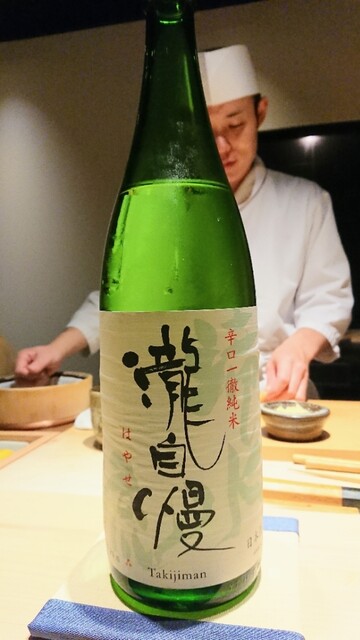 辛口一徹純米
瀧自慢
はやせ
Takijiman